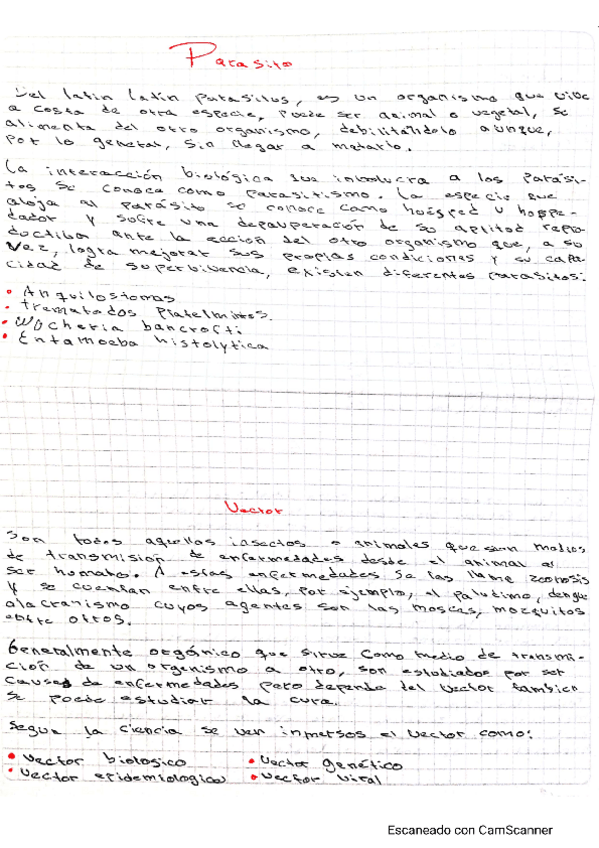 Parasito
Del latin latin parasitus, es un organismo que vive
a costa de otra especie, Puede ser animal o vegetal, se
alimenta del otro organismo, debilitándolo aunque,
por lo general, sin llegar a matarlo.
La interacción biológica que involucra a los parási-
tos se conoca como parasitismo. La especie que
aloja al parásito se conoce como huésped u hospe-
dador y sufre una depauperación de su aptitud repro-
ductiba ante la acción del otro organismo que, a su
vez, logra mejorar sus propias condiciones y su capa-
cidad de superbivencia, existen diferentes parasitos:
• Anquilostomas
• trematodos Platelmintes.
• Wucheria bancrofti
• Entamoeba histolytica
Vector
Son todos aquellos insectos o animales que sean medios
de transmisión de enfermedades desde el animal al
ser humano. A estas enfermedades se las llame zoonosis
y se cuentan entre ellas, por ejemplo, el paludimo, dengue
alacranismo cuyos agentes son las moscas, mozquitos
entre otros.
Generalmente orgánico que sirve como medio de transmi-
ción de un organismo a otro, son estudiados por ser
causas de enfermedades pero depende del vector tambien
se puede estudiar la cura.
Segun la ciencia se ven inmersos el vector como:
• Vector biologico • Vector genético
• Vector epidemiologico • Vector viral
Escaneado con CamScanner